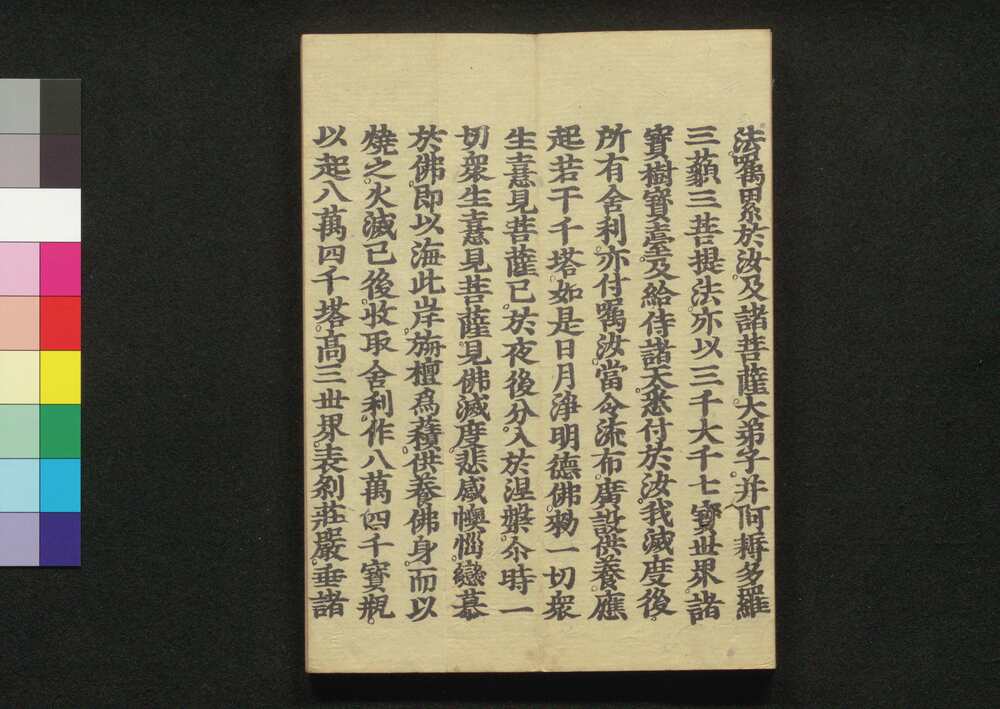 法。囑累於汝。及諸菩薩大弟子。并阿耨多羅
三藐三菩提法。亦以三千大千七寶世界諸
寶樹寶臺。及給侍諸天。悉付於汝。我滅度後。
所有舍利。亦付囑汝。當令流布。廣設供養。應
起若干千塔。如是日月淨明德佛。勑一切衆
生憙見菩薩已。於夜後分。入於涅槃。尒時一
切衆生憙見菩薩。見佛滅度。悲感懊惱。戀慕
於佛。即以海此岸栴檀爲䕸。供養佛身。而以
燒之。火滅已後。收取舍利。作八萬四千寶瓶。
以起八萬四千塔。高三世界。表刹莊嚴。垂諸